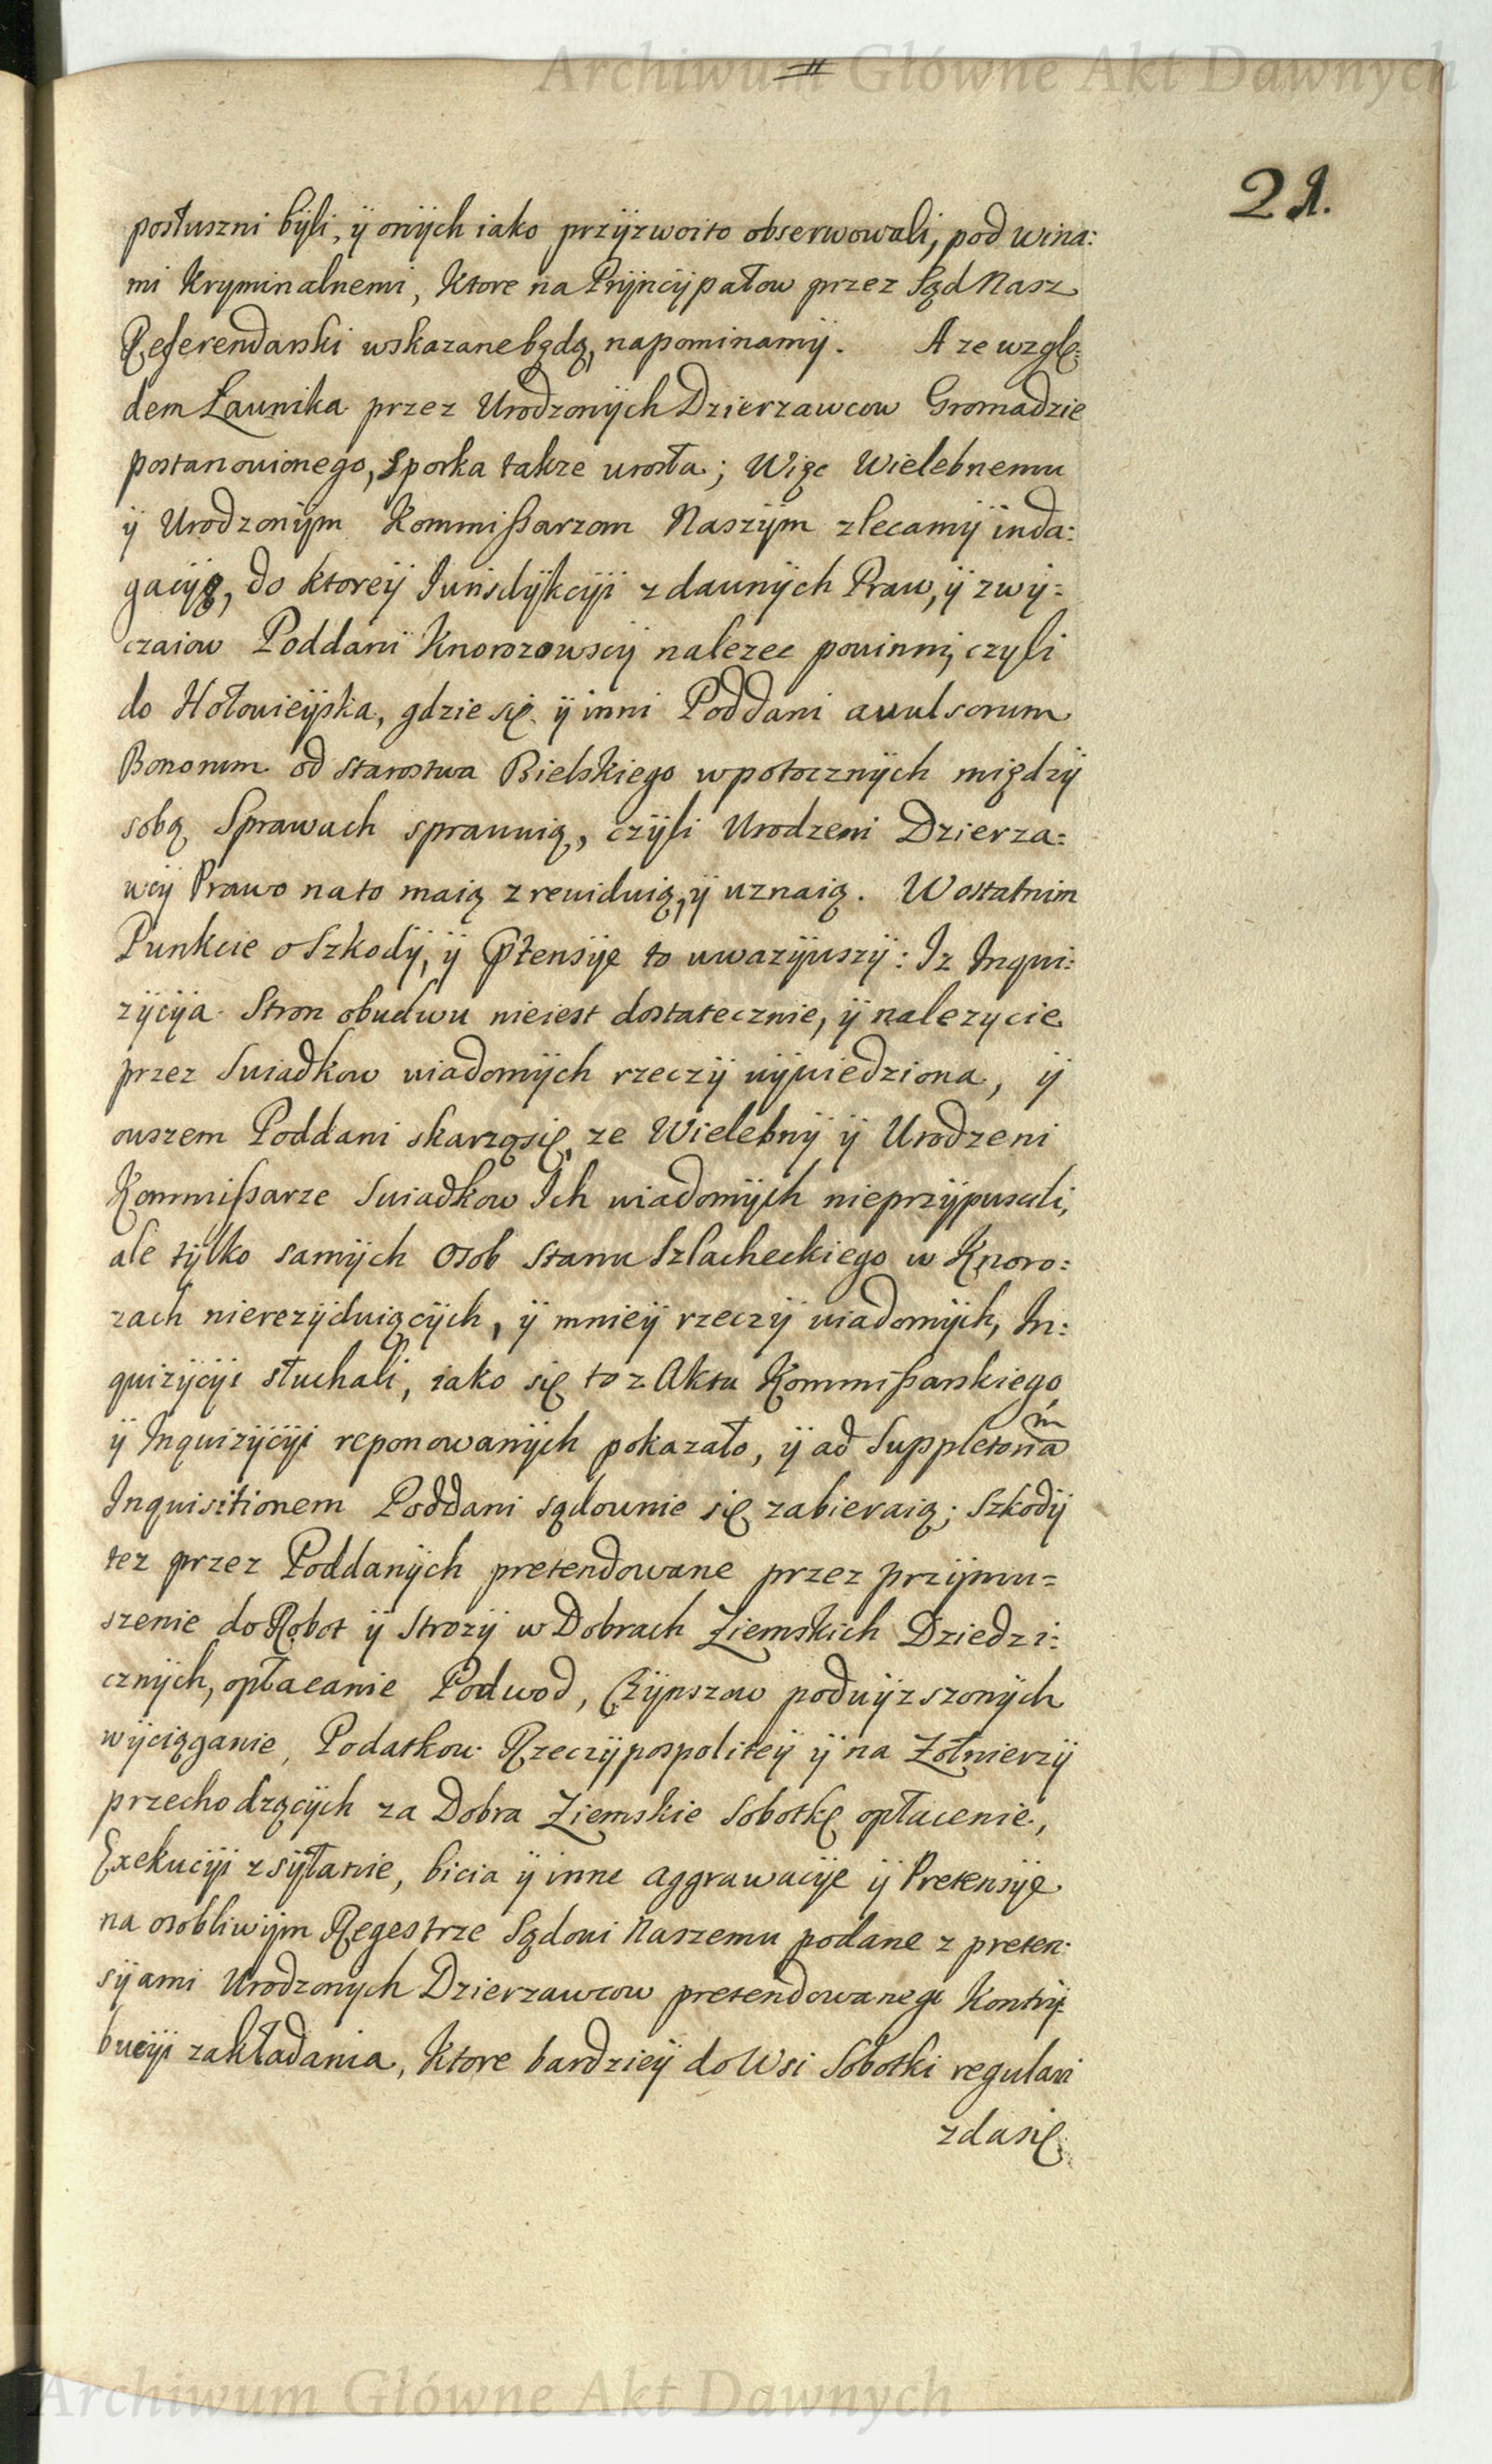 Archiwum Główne Akt Dawnych
21.
posłuszni byli, ÿ onÿch iako przÿzwoito obserwowali, pod wina:
mi Kryminalnemi, Ktore na Prÿncÿpałow przez Sąd Nasz
Referendarski wskazane będą, napominamÿ. A ze wzglę:
dem Ławnika przez Urodzonÿch Dzierzawcow Gromadzie
postanowionego, sporka takze urosła; Więc Wielebnemu
ÿ Urodzonÿm Kommißarzom Naszÿm zlecamÿ inda:
gacÿą, do ktoreÿ Iurisdÿkcÿi z dawnÿch Praw, ÿ zwÿ:
czaiow Poddani Knorozowscÿ nalezec powinni, czyli
do Hołowieÿska, gdzie się ÿ inni Poddani avulsorum
Bonorum od Starostwa Bielskiego w potocznÿch międzÿ
sobą Sprawach sprawuią, czÿli Urodzeni Dzierza:
wcÿ Prawo na to maią zrewiduią, ÿ uznaią. W ostatnim
Punkcie o Szkodÿ, ÿ Ptensÿe to uwazÿwszÿ: Iz Inqui:
zÿcÿa Stron obudwu nieiest dostatecznie, ÿ nalezycie
przez Swiadkow wiadomÿch rzeczÿ wÿwiedziona, ÿ
owszem Poddani skarząsię, ze Wielebnÿ ÿ Urodzeni
Kommißarze Swiadkow Ich wiadomÿch nieprzÿpuscili,
ale tÿlko samÿch osob Stanu Szlacheckiego w Knoro:
zach nierezÿduiącÿch, ÿ mnieÿ rzeczÿ wiadomÿch, In:
quizÿcÿi słuchali, iako się to z Aktu Kommißarskiego
ÿ Inquizÿcÿi reponowanÿch pokazało, ÿ ad Suppletoriam
Inquisitionem Poddani sądownie się zabieraią; Szkodÿ
tez przez Poddanÿch pretendowane przez przÿmu=
szenie do Robot ÿ Strozÿ w Dobrach Ziemskich Dziedzi:
cznÿch, opłacanie Podwod, Czÿnszow podwÿzszonÿch
wÿciąganie, Podatkow Rzeczÿpospoliteÿ ÿ na Zołnierzÿ
przechodzącÿch za Dobra Ziemskie Sobotkę opłacenie,
Exekucÿi zsÿłanie, bicia ÿ inne aggrawacÿe ÿ Pretensÿe
na osobliwÿm Regestrze Sądowi Naszemu podane z preten:
sÿami Urodzonych Dzierzawcow pretendowanego Kontrÿ:
bucÿi zakładania, Ktore bardzieÿ do Wsi Sobotki regulari
zdasię
Archiwum Główne Akt Dawnych